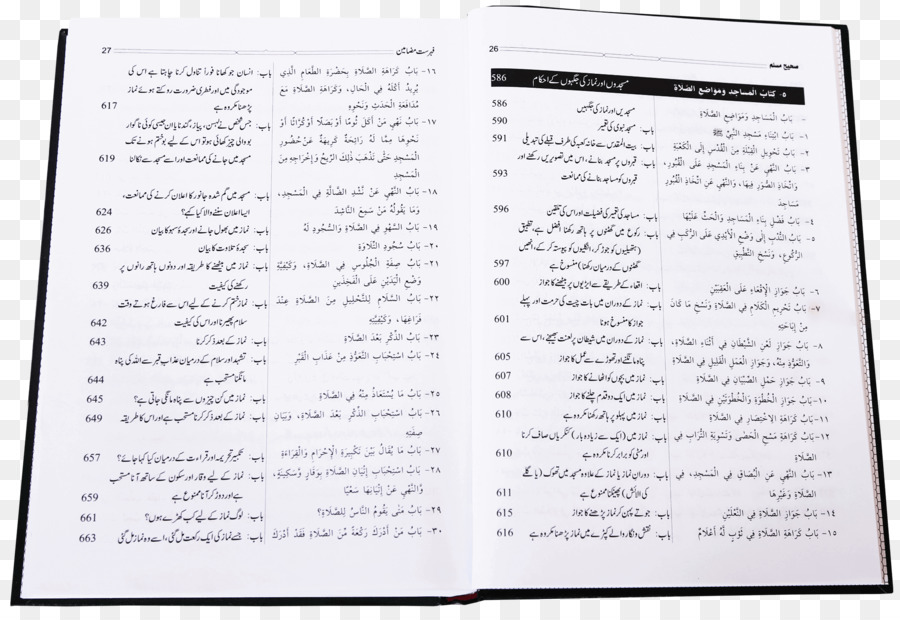 26
صحیح مسلم
٥- كتاب المساجد ومواضع الصلاة
مسجدوں اور نماز کی جگہوں کے احکام 586
- بَابُ الْمَسَاجِدِ وَمَوَاضِعِ الصَّلَاةِ
مسجدیں اور نماز کی جگہیں 586
١- بَابُ ابْتِنَاءِ مَسْجِدِ النَّبِيِّ ﷺ
باب: مسجد نبوی کی تعمیر 590
٢- بَابُ تَحْوِيلِ الْقِبْلَةِ مِنَ الْقُدْسِ إِلَى الْكَعْبَةِ
باب: بیت المقدس سے خانہ کعبہ کی طرف قبلے کی تبدیلی 591
٣- بَابُ النَّهْيِ عَنْ بِنَاءِ الْمَسَاجِدِ عَلَى الْقُبُورِ،
باب: قبروں پر مسجد بنانے، اس میں تصویریں رکھنے اور
وَاتِّخَاذِ الصُّوَرِ فِيهَا، وَالنَّهْيِ عَنِ اتِّخَاذِ الْقُبُورِ
قبروں کو مساجد بنانے کی ممانعت 593
مَسَاجِدَ
٤- بَابُ فَضْلِ بِنَاءِ الْمَسَاجِدِ وَالْحَثِّ عَلَيْهَا
باب: مساجد کی تعمیر کی فضیلت اور اس کی تلقین 596
٥- بَابُ النَّدْبِ إِلَى وَضْعِ الْأَيْدِي عَلَى الرُّكَبِ فِي
باب: رکوع میں گھٹنوں پر ہاتھ رکھنا افضل ہے، تطبیق
الرُّكُوعِ، وَنَسْخِ التَّطْبِيقِ
(ہتھیلیوں کو جوڑ کر، انگلیوں کو پیوستہ کر کے، انھیں
گھٹنوں کے درمیان رکھنا) منسوخ ہے 597
٦- بَابُ جَوَازِ الْإِقْعَاءِ عَلَى الْعَقِبَيْنِ
باب: اقعاء کے طریقے سے ایڑیوں پر بیٹھنے کا جواز 600
٧- بَابُ تَحْرِيمِ الْكَلَامِ فِي الصَّلَاةِ وَنَسْخِ مَا كَانَ
باب: نماز کے دوران میں بات چیت کی حرمت اور پہلے
مِنْ إِبَاحَتِهِ
جواز کا منسوخ ہونا 601
٨- بَابُ جَوَازِ لَعْنِ الشَّيْطَانِ فِي أَثْنَاءِ الصَّلَاةِ
باب: نماز کے دوران میں شیطان پر لعنت بھیجنے، اس سے
وَالتَّعَوُّذِ مِنْهُ، وَجَوَازِ الْعَمَلِ الْقَلِيلِ فِي الصَّلَاةِ
پناہ مانگنے اور تھوڑے سے عمل کا جواز 605
٩- بَابُ جَوَازِ حَمْلِ الصِّبْيَانِ فِي الصَّلَاةِ
باب: نماز میں بچوں کو اٹھانے کا جواز 607
١٠- بَابُ جَوَازِ الْخُطْوَةِ وَالْخُطْوَتَيْنِ فِي الصَّلَاةِ
باب: نماز میں ایک دو قدم چلنے کا جواز 608
١١- بَابُ كَرَاهَةِ الِاخْتِصَارِ فِي الصَّلَاةِ
باب: نماز میں پہلو پر ہاتھ رکھنا مکروہ ہے 610
١٢- بَابُ كَرَاهَةِ مَسْحِ الْحَصَى وَتَسْوِيَةِ التُّرَابِ فِي
باب: نماز میں (ایک سے زیادہ بار) کنکریاں صاف کرنا
الصَّلَاةِ
اور مٹی کو برابر کرنا مکروہ ہے 610
١٣- بَابُ النَّهْيِ عَنِ الْبُصَاقِ فِي الْمَسْجِدِ، فِي
باب: دوران نماز یا نماز کے علاوہ مسجد میں تھوک (یا گلے
الصَّلَاةِ وَغَيْرِهَا
کی آلائش) پھینکنا ممنوع ہے 611
١٤- بَابُ جَوَازِ الصَّلَاةِ فِي النَّعْلَيْنِ
باب: جوتے پہن کر نماز پڑھنے کا جواز 615
١٥- بَابُ كَرَاهَةِ الصَّلَاةِ فِي ثَوْبٍ لَهُ أَعْلَامٌ
باب: نقش و نگار والے کپڑے میں نماز پڑھنا مکروہ ہے 616
27
فہرست مضامین
١٦- بَابُ كَرَاهَةِ الصَّلَاةِ بِحَضْرَةِ الطَّعَامِ الَّذِي
باب: انسان جو کھانا فوراً تناول کرنا چاہتا ہے اس کی
يُرِيدُ أَكْلَهُ فِي الْحَالِ، وَكَرَاهَةِ الصَّلَاةِ مَعَ
موجودگی میں اور فطری ضرورت روکتے ہوئے نماز
مُدَافَعَةِ الْحَدَثِ وَنَحْوِهِ
پڑھنا مکروہ ہے 617
١٧- بَابُ نَهْيِ مَنْ أَكَلَ ثُومًا أَوْ بَصَلًا أَوْ كُرَّاثًا أَوْ
باب: جس شخص نے لہسن، پیاز، گندنا یا ان جیسی کوئی ناگوار
نَحْوَهَا مِمَّا لَهُ رَائِحَةٌ كَرِيهَةٌ عَنْ حُضُورِ
بو والی چیز کھائی ہو تو اس کے لیے بو ختم ہونے تک
الْمَسْجِدِ حَتَّى تَذْهَبَ ذَلِكَ الرِّيحُ وَإِخْرَاجِهِ مِنَ
مسجد میں جانے کی ممانعت اور اسے مسجد سے نکالنا 619
الْمَسْجِدِ
١٨- بَابُ النَّهْيِ عَنْ نَشْدِ الضَّالَّةِ فِي الْمَسْجِدِ،
باب: مسجد میں گم شدہ جانور کا اعلان کرنے کی ممانعت،
وَمَا يَقُولُهُ مَنْ سَمِعَ النَّاشِدَ
ایسا اعلان سننے والا کیا کہے؟ 624
١٩- بَابُ السَّهْوِ فِي الصَّلَاةِ وَالسُّجُودِ لَهُ
باب: نماز میں بھول جانے اور سجدۂ سہو کا بیان 626
٢٠- بَابُ سُجُودِ التِّلَاوَةِ
باب: سجدۂ تلاوت کا بیان 636
٢١- بَابُ صِفَةِ الْجُلُوسِ فِي الصَّلَاةِ، وَكَيْفِيَّةِ
باب: نماز میں بیٹھنے کا طریقہ اور دونوں ہاتھ رانوں پر
وَضْعِ الْيَدَيْنِ عَلَى الْفَخِذَيْنِ
رکھنے کی کیفیت 639
٢٢- بَابُ السَّلَامِ لِلتَّحْلِيلِ مِنَ الصَّلَاةِ عِنْدَ
باب: نماز ختم کرنے کے لیے اس سے فارغ ہوتے وقت
فَرَاغِهَا، وَكَيْفِيَّتِهِ
سلام پھیرنا اور اس کی کیفیت 642
٢٣- بَابُ الذِّكْرِ بَعْدَ الصَّلَاةِ
باب: نماز کے بعد ذکر کرنا 643
٢٤- بَابُ اسْتِحْبَابِ التَّعَوُّذِ مِنْ عَذَابِ الْقَبْرِ
باب: تشہد اور سلام کے درمیان عذاب قبر سے اللہ کی پناہ
مانگنا مستحب ہے 644
٢٥- بَابُ مَا يُسْتَعَاذُ مِنْهُ فِي الصَّلَاةِ
باب: نماز میں کن چیزوں سے پناہ مانگی جاتی ہے؟ 645
٢٦- بَابُ اسْتِحْبَابِ الذِّكْرِ بَعْدَ الصَّلَاةِ، وَبَيَانِ
باب: نماز کے بعد ذکر کرنا مستحب ہے اور اس کا طریقہ 649
صِفَتِهِ
٢٧- بَابُ مَا يُقَالُ بَيْنَ تَكْبِيرَةِ الْإِحْرَامِ وَالْقِرَاءَةِ
باب: تکبیر تحریمہ اور قراءت کے درمیان کیا کہا جائے؟ 657
٢٨- بَابُ اسْتِحْبَابِ إِتْيَانِ الصَّلَاةِ بِوَقَارٍ وَسَكِينَةٍ،
باب: نماز کے لیے وقار اور سکون کے ساتھ آنا مستحب
وَالنَّهْيِ عَنْ إِتْيَانِهَا سَعْيًا
ہے اور دوڑ کر آنا ممنوع ہے 659
٢٩- بَابُ مَتَى يَقُومُ النَّاسُ لِلصَّلَاةِ؟
باب: لوگ نماز کے لیے کب کھڑے ہوں؟ 661
٣٠- بَابُ مَنْ أَدْرَكَ رَكْعَةً مِنَ الصَّلَاةِ فَقَدْ أَدْرَكَ
باب: جسے نماز کی ایک رکعت مل گئی، اسے وہ نماز مل گئی 663